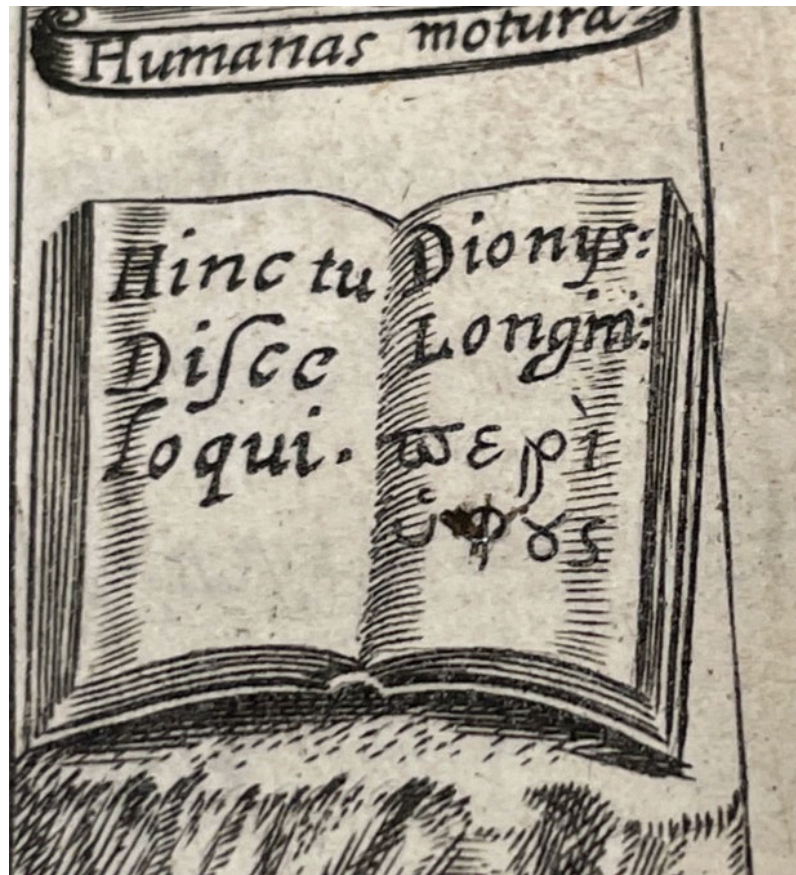 Humanas motura
Hinc tu
Diſce
loqui.
Dionys:
Longin:
ϖερὶ